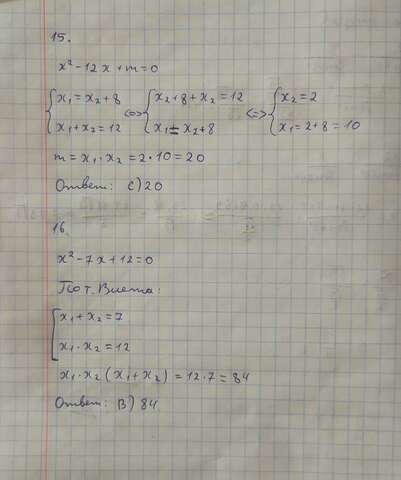 15.
x² - 12x + m = 0
{ x₁ = x₂ + 8 <=> { x₂ + 8 + x₂ = 12 <=> { x₂ = 2
x₁ + x₂ = 12 x₁ = x₂ + 8 x₁ = 2 + 8 = 10
m = x₁ · x₂ = 2 · 10 = 20
Ответ: C) 20
16.
x² - 7x + 12 = 0
По т. Виета:
{ x₁ + x₂ = 7
x₁ · x₂ = 12
x₁ · x₂ (x₁ + x₂) = 12 · 7 = 84
Ответ: B) 84